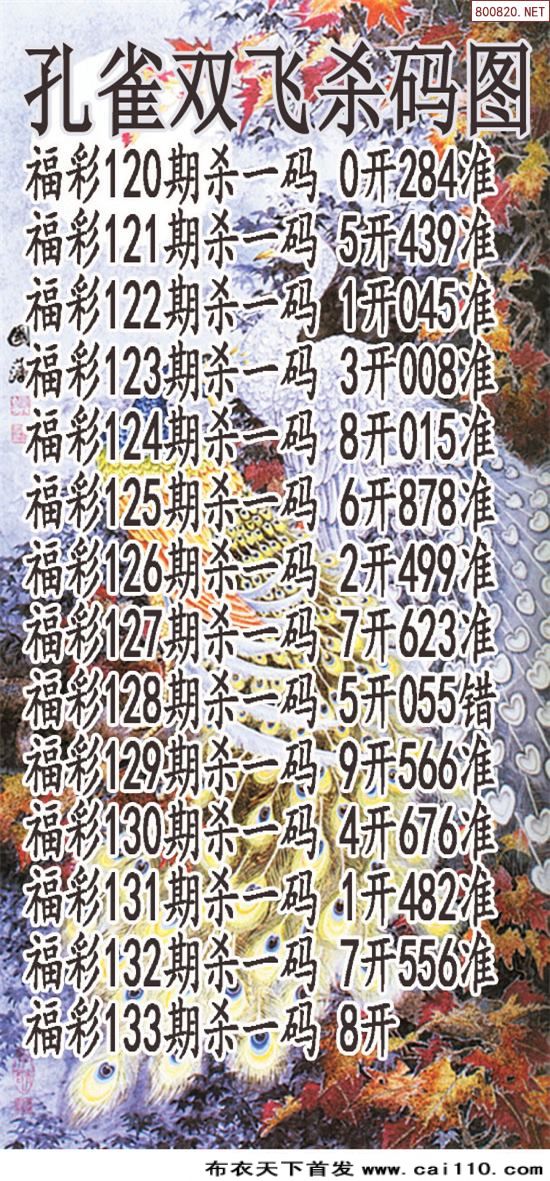 800820.NET
孔雀双飞杀码图
福彩120期杀一码 0开284准
福彩121期杀一码 5开439准
福彩122期杀一码 1开045准
福彩123期杀一码 3开008准
福彩124期杀一码 8开015准
福彩125期杀一码 6开878准
福彩126期杀一码 2开499准
福彩127期杀一码 7开623准
福彩128期杀一码 5开055错
福彩129期杀一码 9开566准
福彩130期杀一码 4开676准
福彩131期杀一码 1开482准
福彩132期杀一码 7开556准
福彩133期杀一码 8开
布衣天下首发 www.cai110.com